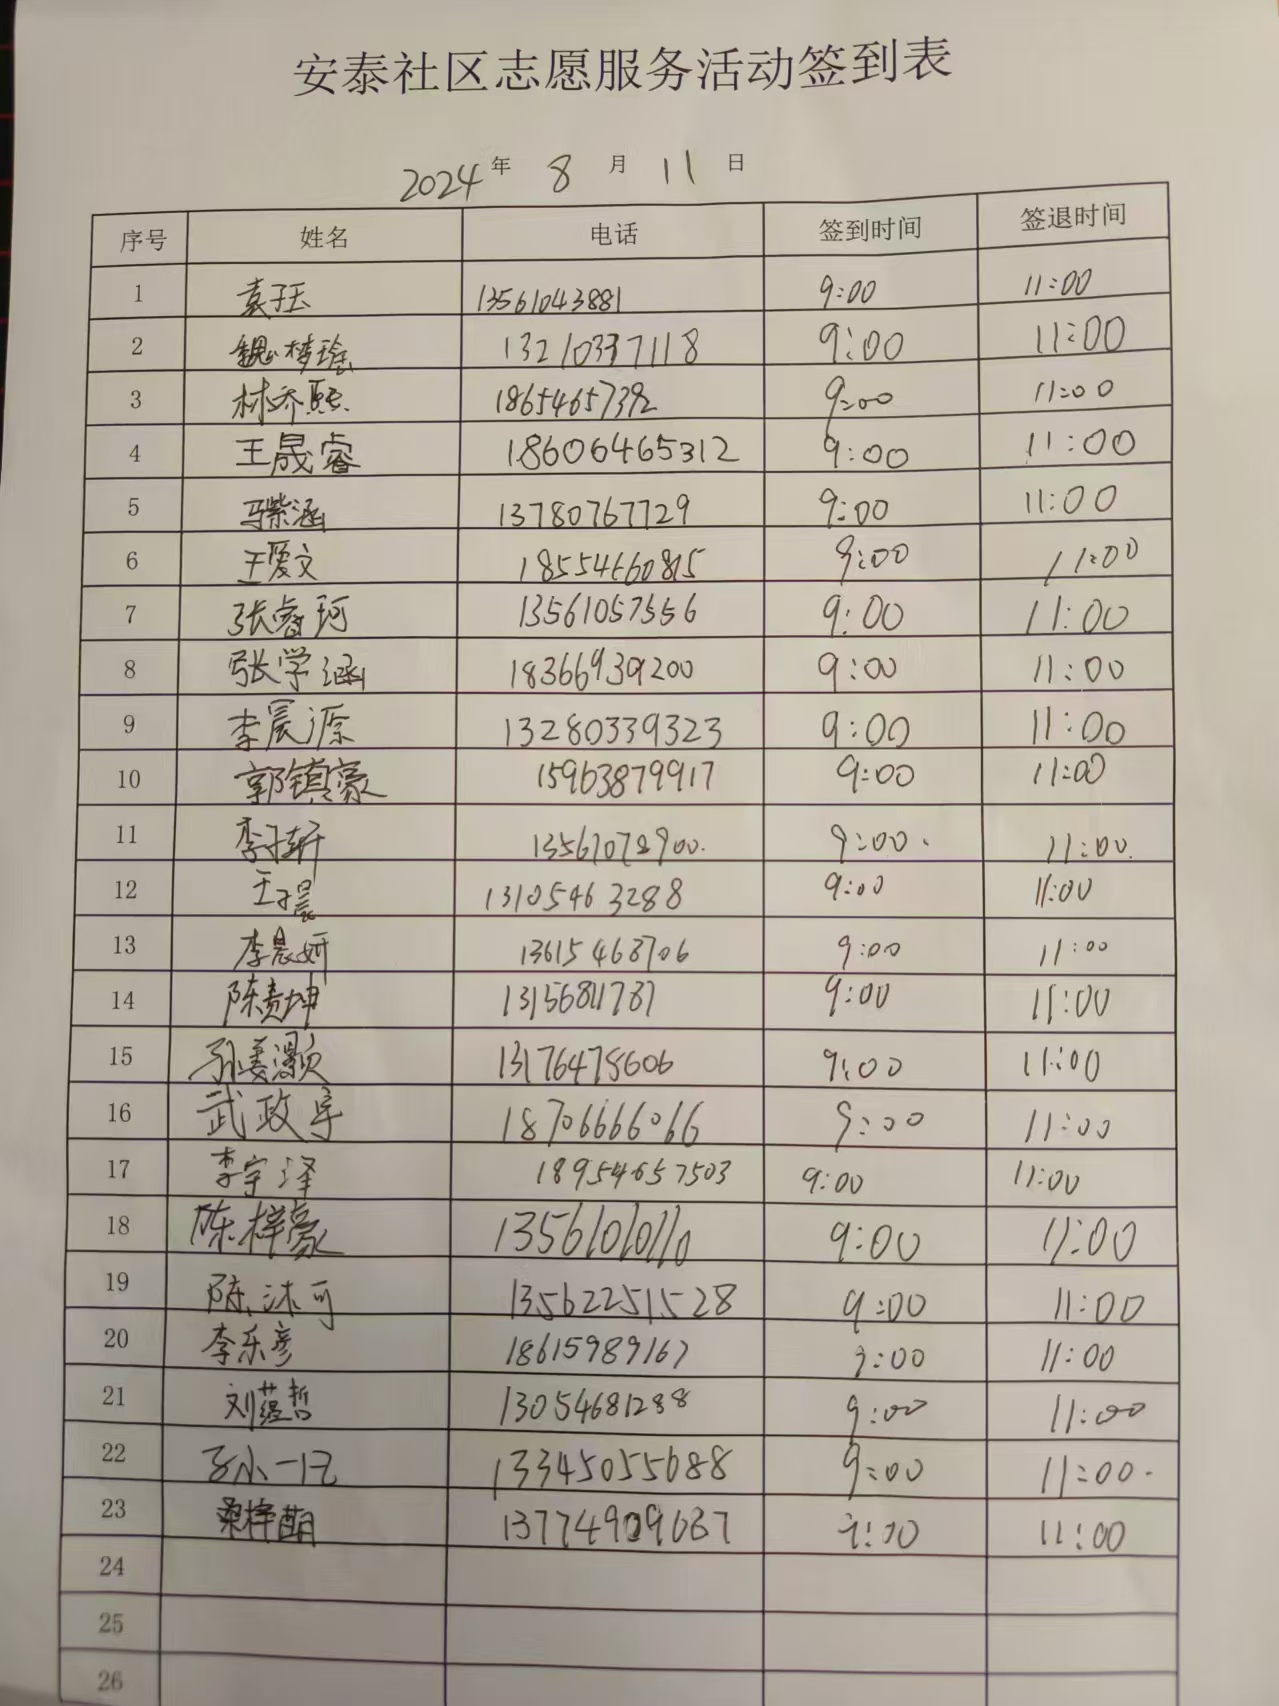 安泰社区志愿服务活动签到表
2024年 8月 11日
序号 姓名 电话 签到时间 签退时间
1 袁子玉 13561043881 9:00 11:00
2 魏梦瑶 13210337118 9:00 11:00
3 林乔熙 9:00 11:00
4 王晟睿 18606465312 9:00 11:00
5 马紫涵 13780767729 9:00 11:00
6 王爱文 18554660815 9:00 11:00
7 张睿珂 13561057556 9:00 11:00
8 张学涵 18366939200 9:00 11:00
9 李晨源 13280339323 9:00 11:00
10 郭镇豪 15963879917 9:00 11:00
11 李子轩 13561072900. 9:00. 11:00.
12 王子晨 13105463288 9:00 11:00
13 李晨妍 13615468706 9:00 11:00
14 陈贵坤 13156811787 9:00 11:00
15 孙姜灏 13176475606 9:00 11:00
16 武政孚 18706666066 9:00 11:00
17 李宇泽 18954657503 9:00 11:00
18 陈梓豪 13561010110 9:00 11:00
19 陈沐可 13562251528 9:00 11:00
20 李乐彦 18615989167 9:00 11:00
21 刘蕴哲 13054681288 9:00 11:00
22 孙一 13345055688 9:00 11:00.
23 桑梓萌 13774909687 9:00 11:00
24
25
26